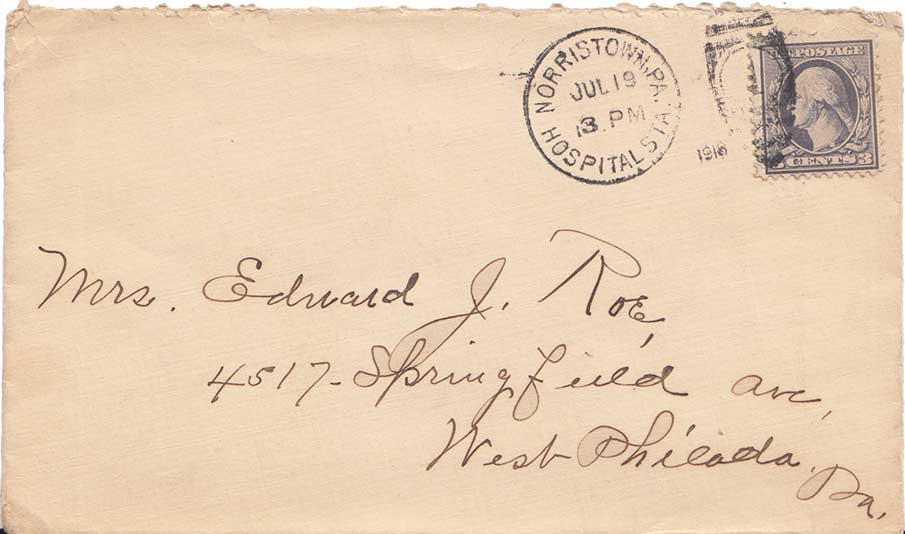 NORRISTOWN, PA.
JUL 19
3 PM
HOSPITAL STA.
POSTAGE
CENTS 3
Mrs. Edward J. Roe,
4517 - Springfield Ave,
West Philada.
Pa.